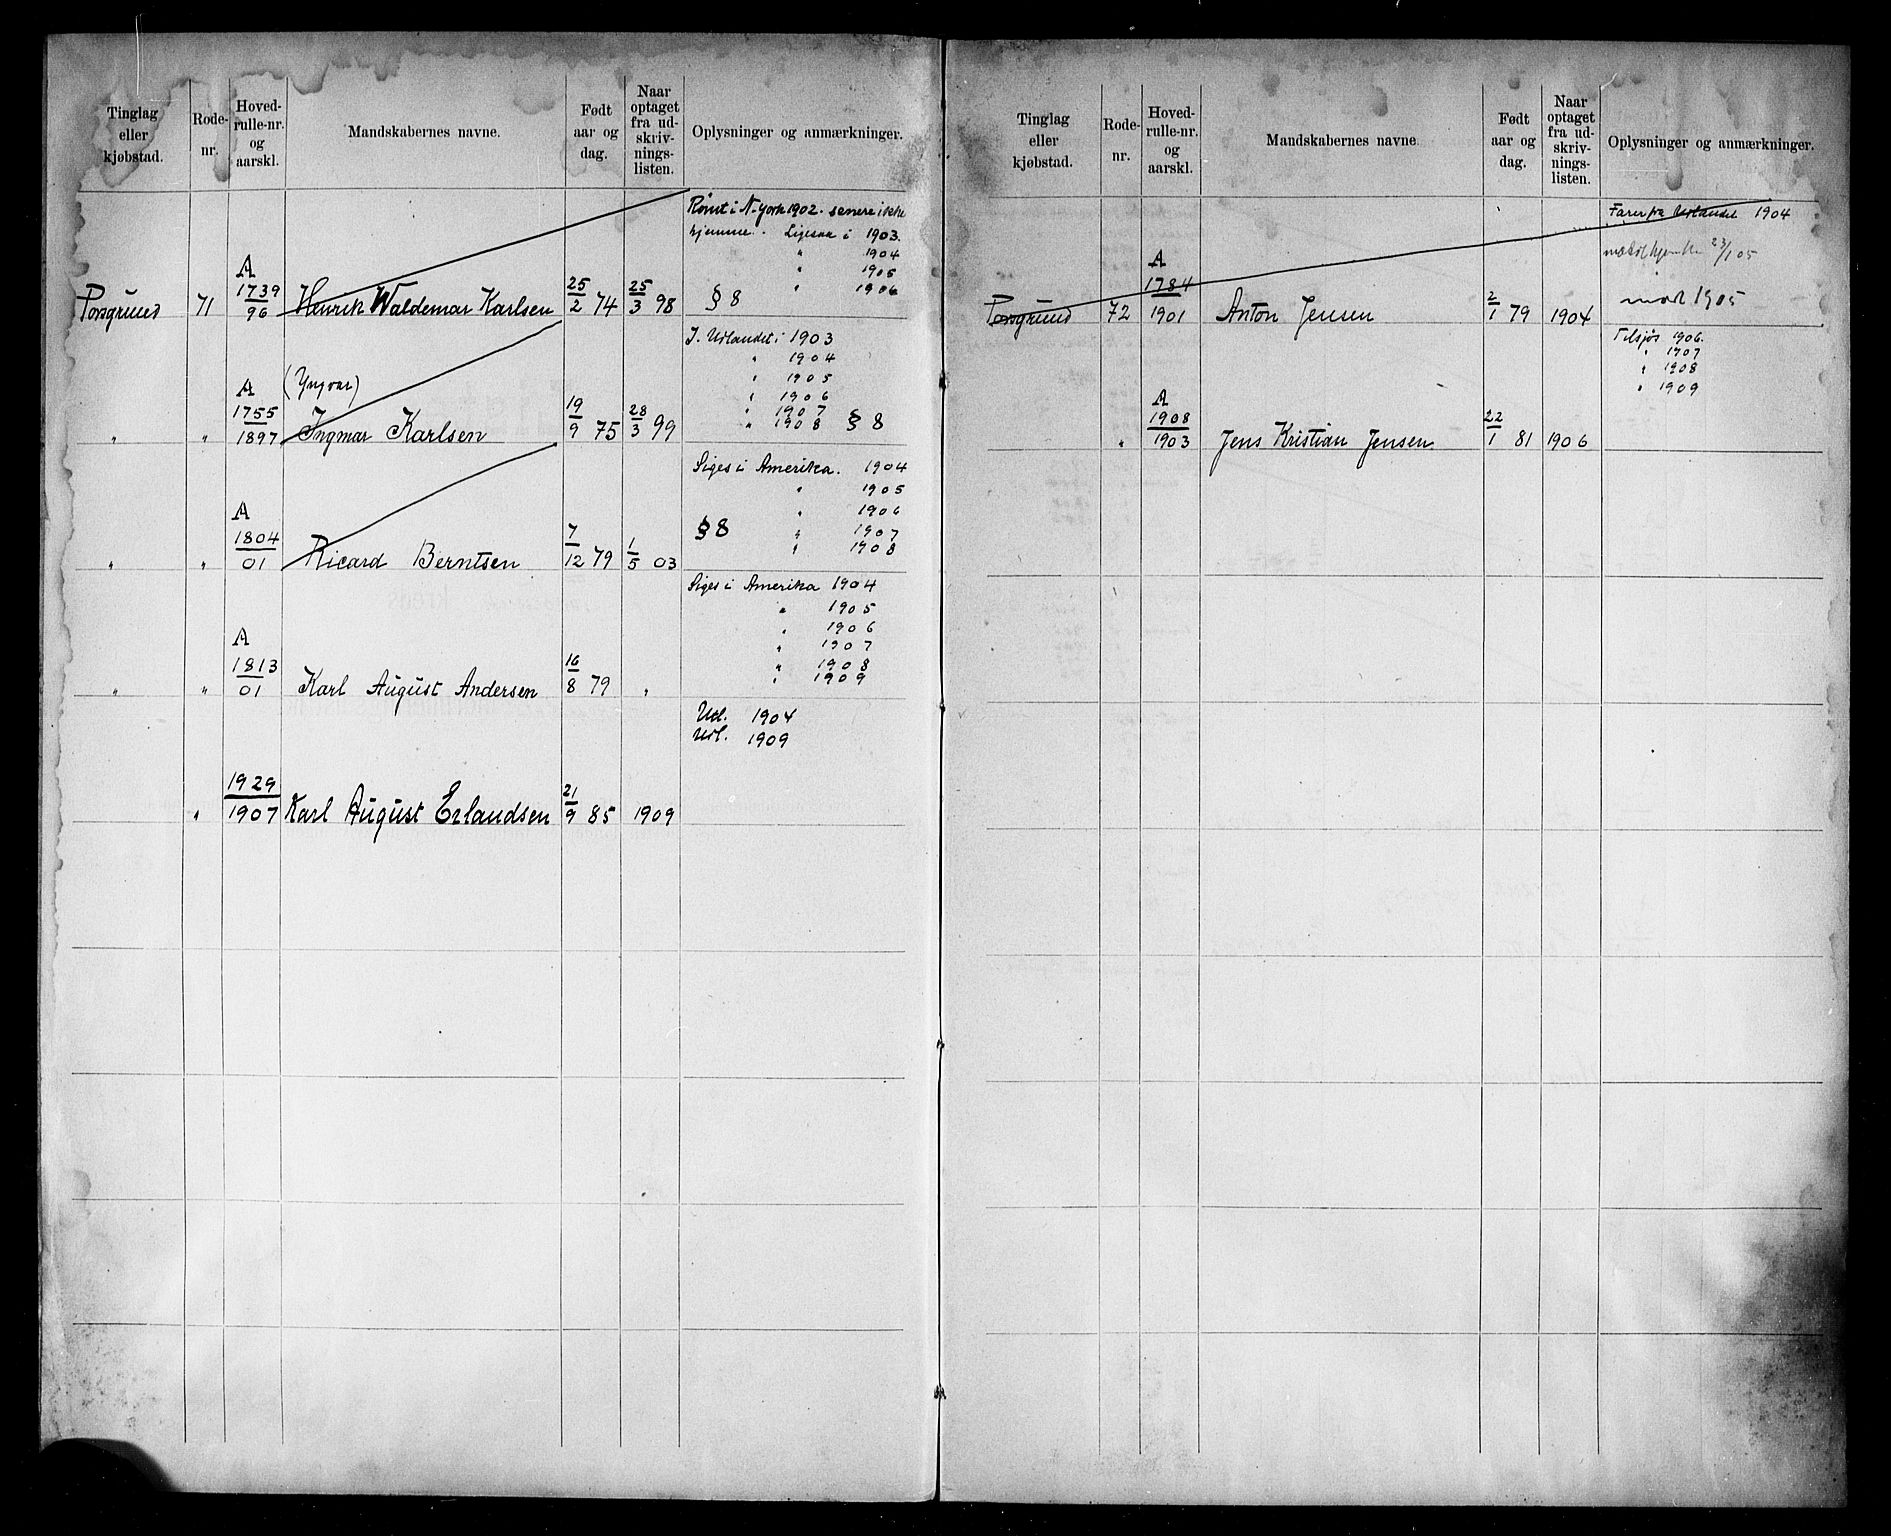 Tinglag eller kjøbstad. Rode-nr. Hoved-rulle-nr. og aarskl. Mandskabernes navne. Født aar og dag. Naar optaget fra ud-skriv-nings-listen. Oplysninger og anmærkninger.
Rømt i N-York 1902. senere ikke
hjemme. Ligesaa i 1903.
" 1904
" 1905
" 1906
A
Porsgrund 71 1739/96 Henrik Waldemar Karlsen 25/2 74 25/3 98 § 8
I Udlandet i 1903
" 1904
" 1905
" 1906
" 1907
A (Yngvar)
" " 1755/1897 Ingmar Karlsen 19/9 75 28/3 99 " 1908 § 8
Siges i Amerika. 1904
" 1905
" 1906
§ 8 " 1907
" 1908
A
" " 1804/01 Ricard Berntsen 7/12 79 1/5 03
Siges i Amerika 1904
" 1905
" 1906
" 1907
" 1908
" 1909
A
" " 1813/01 Karl August Andersen 16/8 79 "
Utl. 1904
Utl. 1909
" 1929/1907 Karl August Erlandsen 21/9 85 1909
Tinglag eller kjøbstad. Rode-nr. Hoved-rulle-nr. og aarskl. Mandskabernes navne Født aar og dag. Naar optaget fra ud-skriv-nings-listen. Oplysninger og anmærkninger.
Farer fra Udlandet 1904
23/1 05
A
Porsgrund 72 1784/1901 Anton Jensen 2/1 79 1904 mød 1905
Tilsjøs 1906.
" 1907
" 1908
" 1909
A
" 1908/1903 Jens Kristian Jensen 22/1 81 1906